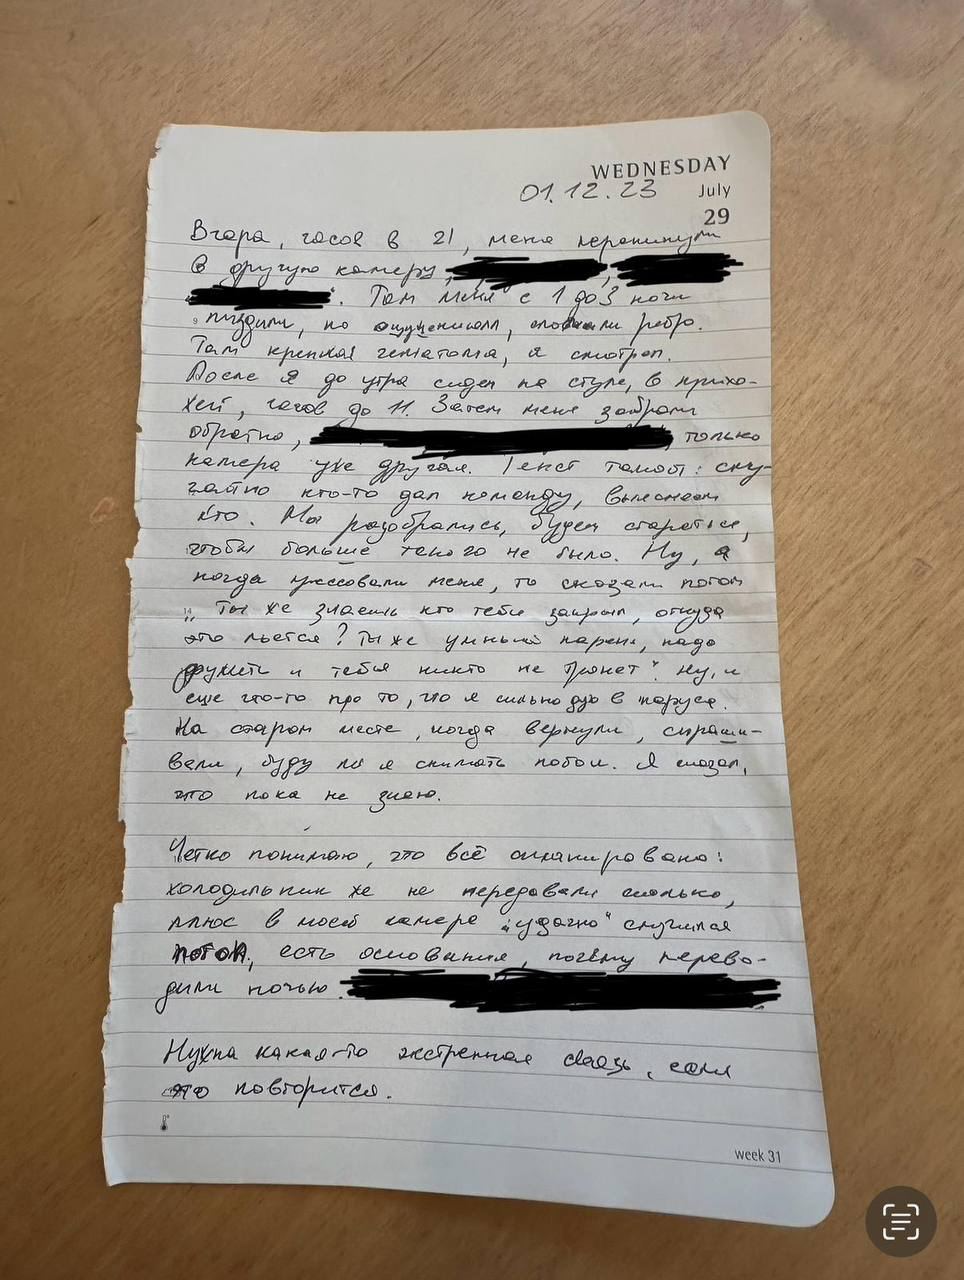 WEDNESDAY
01.12.23 July
29
Вчора, часов в 21, меня перекинули
в другую камеру,
. Там меня с 1 до 3 ночи
9 пиздили, по ощущениям, сломали ребро.
Там крепкая гематома, я смотрел.
После я до утра сидел на стуле, в прихо-
жей, часов до 11. Затем меня забрали
обратно, , только
камера уже другая. Текст такой:
кто-то дал команду, выясняем
кто. Мы разобрались, будем стараться,
чтобы больше такого не было. Ну, а
когда меня, то сказали потом
14 „Ты же знаешь кто тебя закрыл, откуда
это льется? Ты же умный парень, надо
дружить и тебя никто не тронет" Ну, и
еще что-то про то, что я сильно дую в паруса.
На старом месте, когда вернули, спраши-
вали, буду ли я снимать побои. Я сказал,
что пока не знаю.
Четко понимаю, что всё спланировано:
холодильник же не передавали сколько,
плюс в моей камере „удачно" случился
потоп, есть основания, почему перево-
дили ночью.
Нужна какая-то экстренная связь, если
это повторится.
week 31